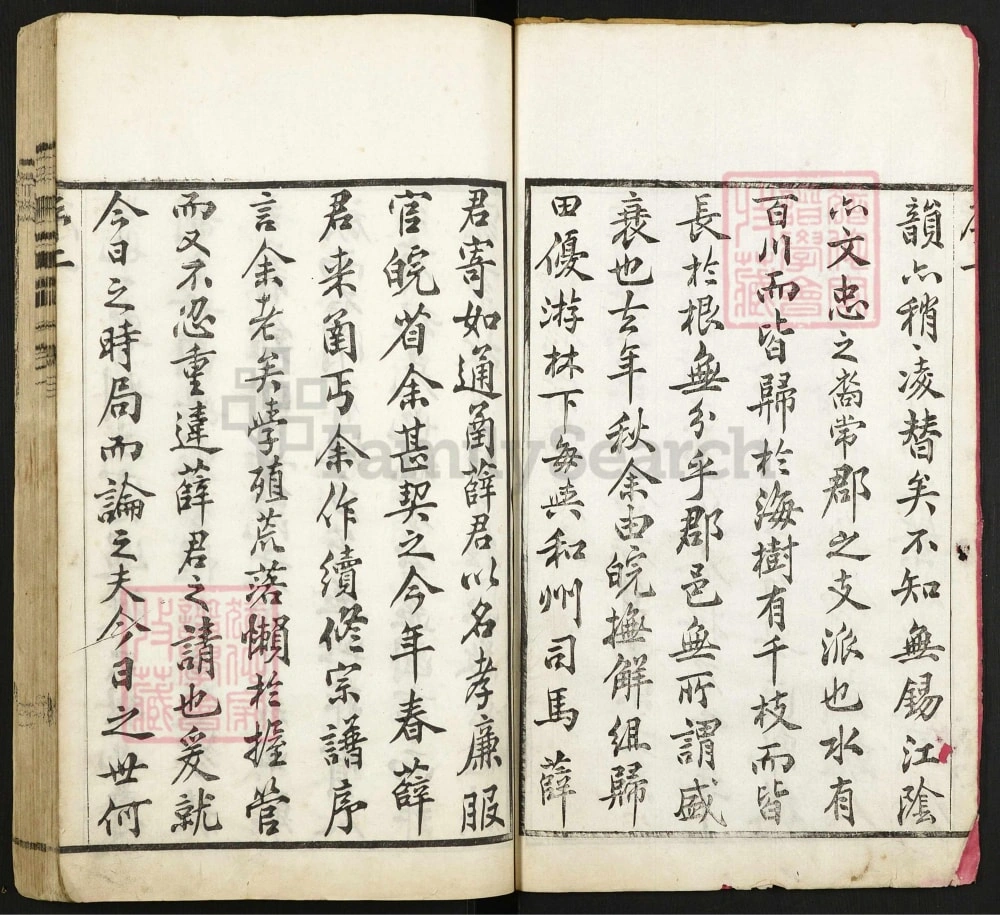 韻亦稍凌替矣不知無錫江陰
亦文忠之裔常郡之支派也水有
百川而皆歸於海樹有千枝而皆
長於根無分乎郡邑無所謂盛
衰也去年秋余由皖撫解組歸
田優游林下每與和州司馬薛
君寄如通蕳薛君以名孝廉服
官皖省余甚契之今年春薛
君来蕳丐余作續修宗譜序
言余老矣學殖荒落懶於握管
而又不忍重違薛君之請也爰就
今日之時局而論之夫今日之世何
FamilySearch